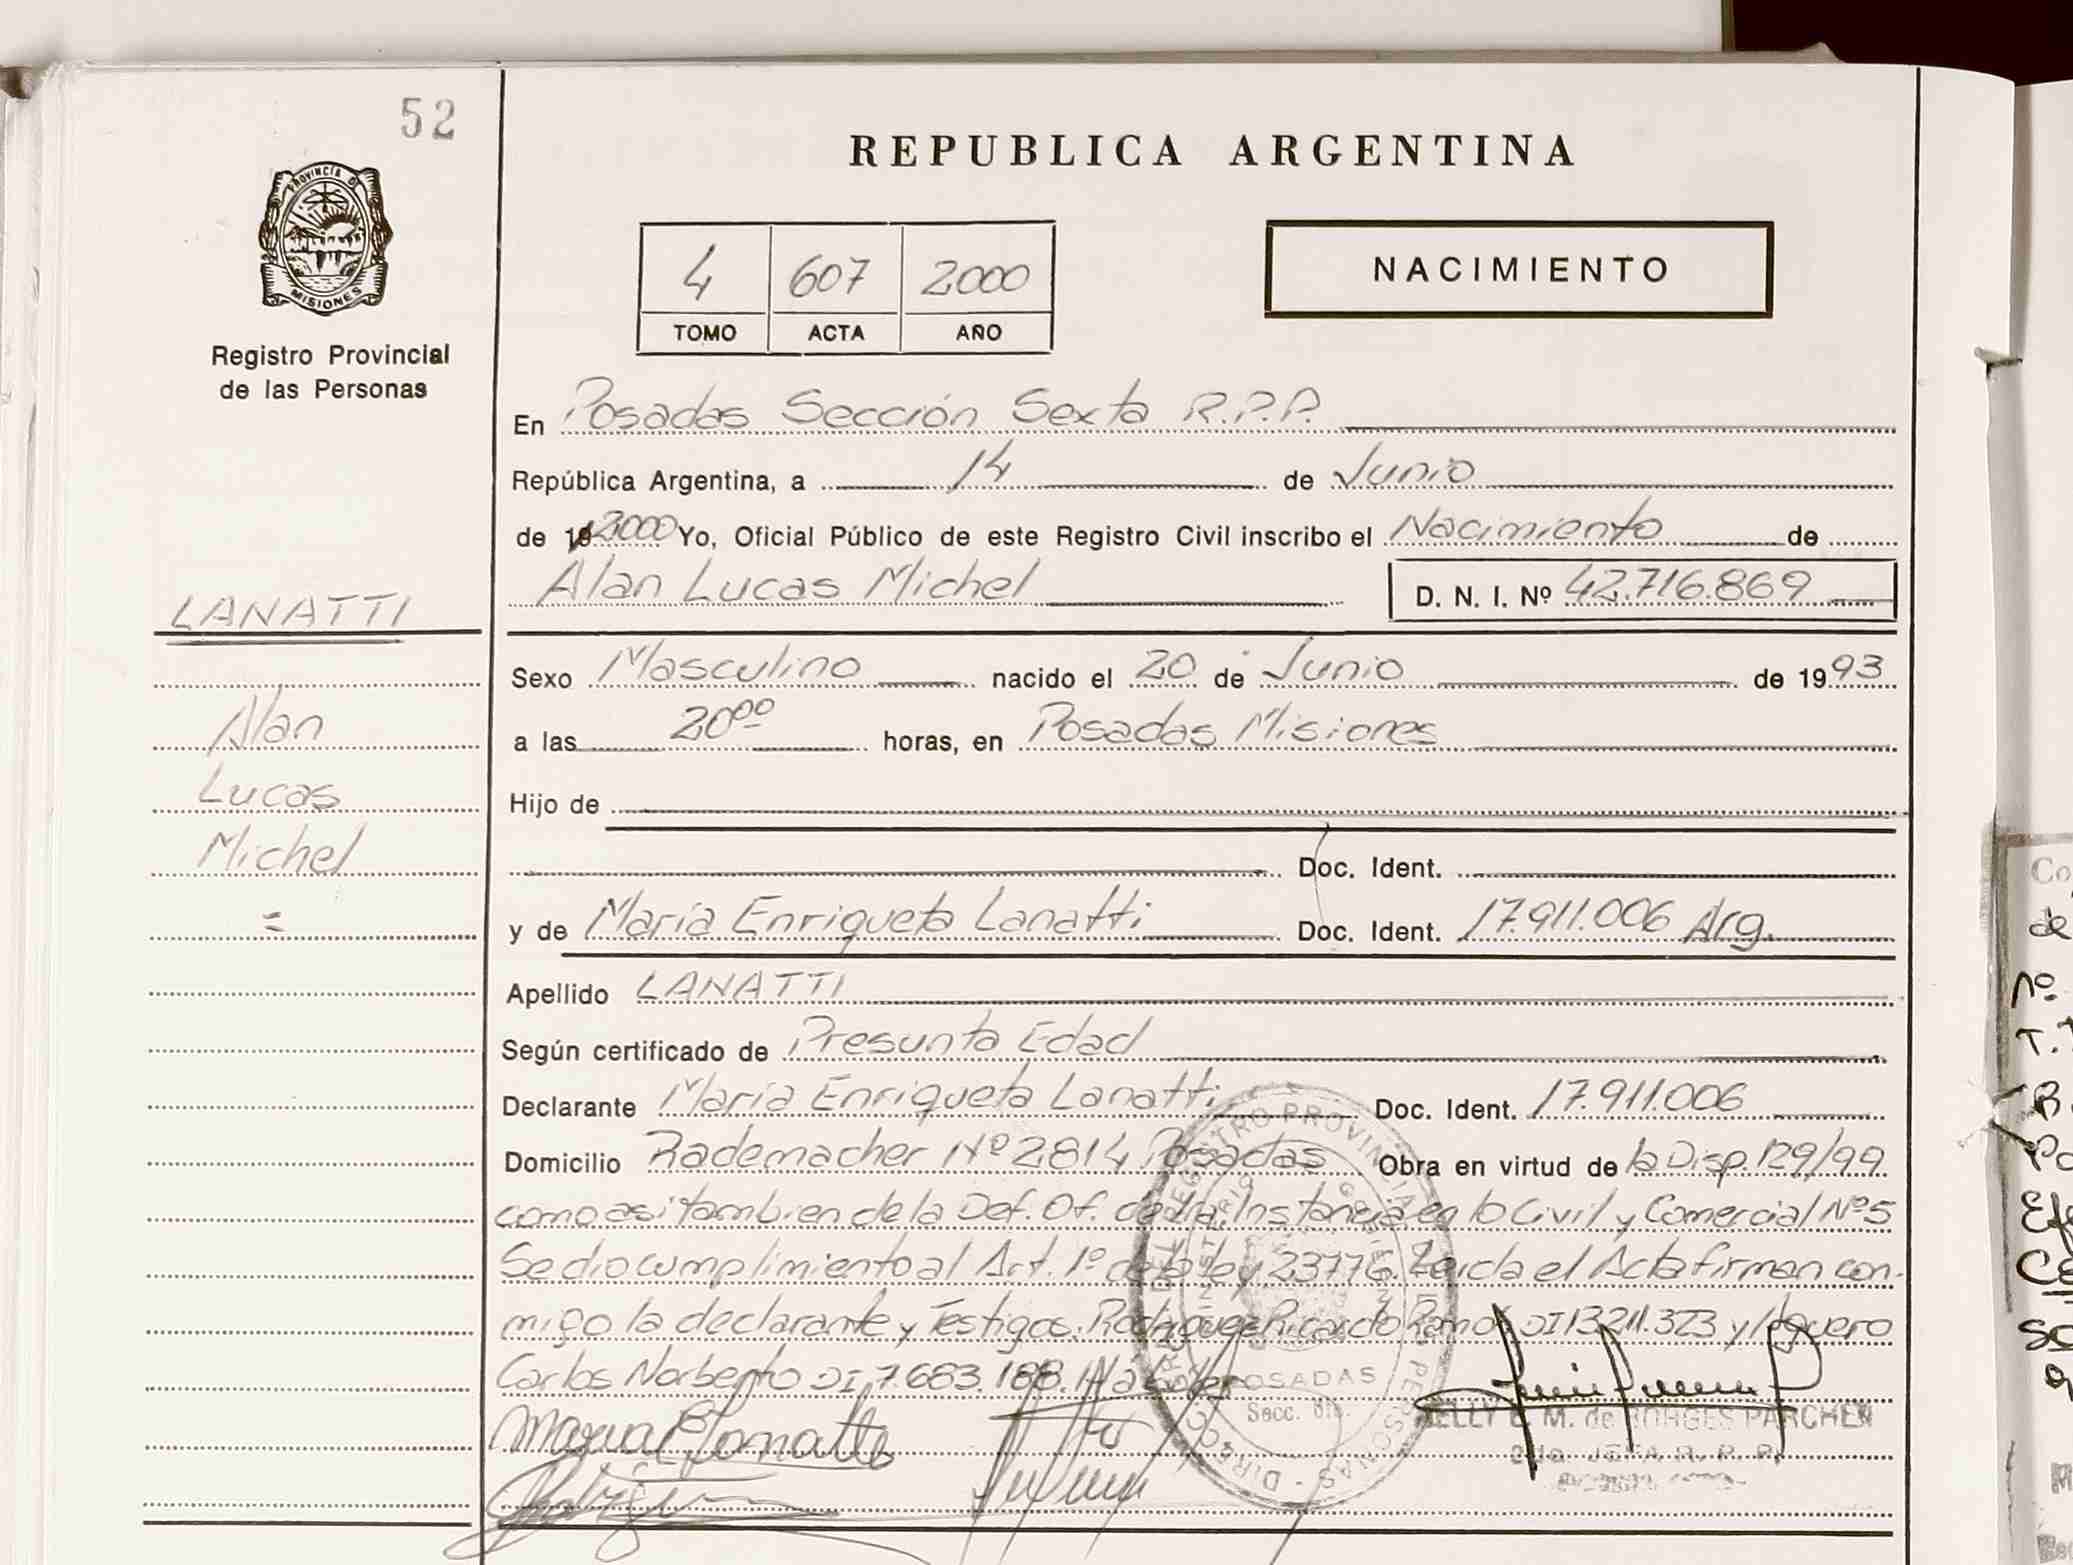 52
REPUBLICA ARGENTINA
PROVINCIA D
MISIONES
Registro Provincial
de las Personas
4 607 2000
TOMO ACTA AÑO
NACIMIENTO
En Posadas Sección Sexta R.P.P.
República Argentina, a 14 de Junio
de 19 2000 Yo, Oficial Público de este Registro Civil inscribo el Nacimiento de
Alan Lucas Michel D. N. I. Nº 42.716.869
LANATTI
Alan
Lucas
Michel
=
Sexo Masculino nacido el 20 de Junio de 1993
a las 20⁰⁰ horas, en Posadas Misiones
Hijo de
Doc. Ident.
y de María Enriqueta Lanatti Doc. Ident. 17.911.006 Arg.
Apellido LANATTI
Según certificado de Presunta Edad
Declarante María Enriqueta Lanatti Doc. Ident. 17.911.006
Domicilio Rademacher Nº 2814 Posadas Obra en virtud de la Disp. 129/99
como asi tambien de la Def. Of. de 1ra. Instancia en lo Civil y Comercial Nº 5
Se dio cumplimiento al Art. 1º de la ley 23776. Leida el Acta firman con-
migo la declarante y Testigos. Rodriguez Ricardo Ramon DI 13.211.323 y
Carlos Norberto DI 7.683.188.
POSADAS
Secc.
NELLY E. M. de BORGES PARCHEN
JEFA R. P. P.
Co
de
nº.
T.
B
Po
Efe
Ce
so